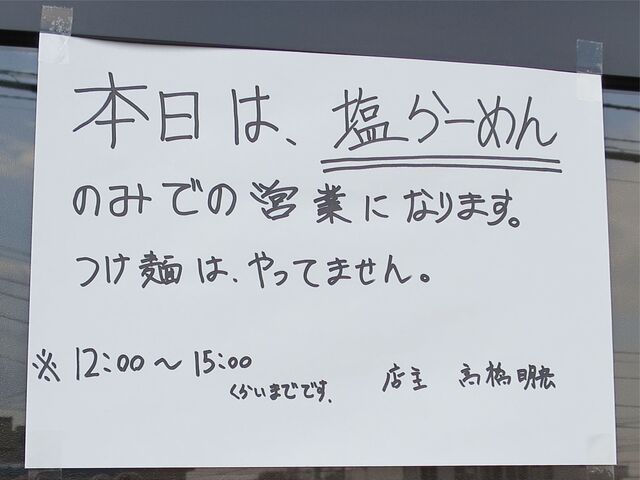 本日は、塩らーめん
のみでの営業になります。
つけ麺は、やってません。
※12:00〜15:00
くらいまでです、
店主 高橋明宏